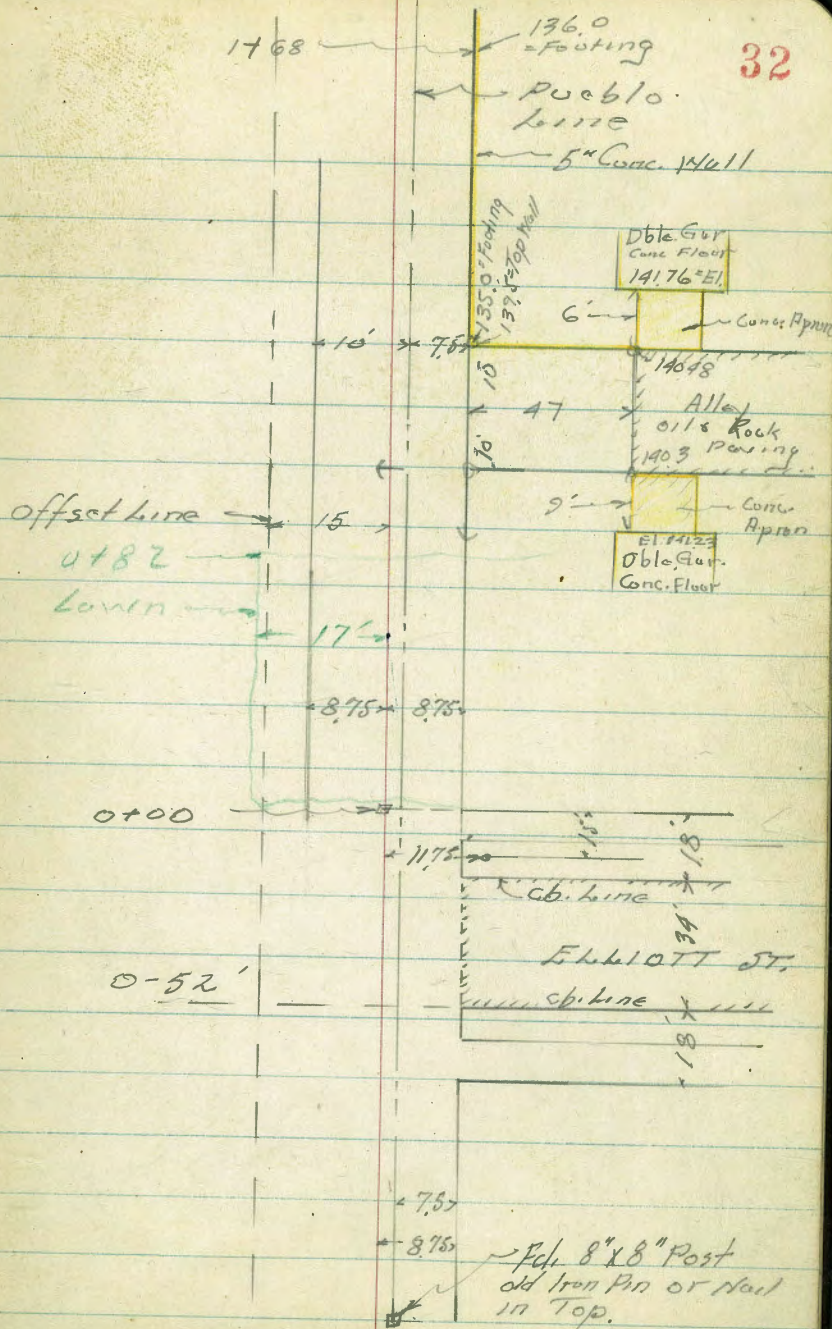 32
1+68
136.0
=Footing
Pueblo
Line
5" Conc. Wall
135.0=Footing
139.5=Top Wall
Dble. Gar
Conc Floor
141.76=El.
6'
Conc. Apron
10'
7.5
140.48
10
47
Alley
oil & Rock
Paving
10'
140.3
Offset Line
15
9'
Conc.
Apron
El. 141.23
Dble. Gar.
Conc. Floor
0+82
Lawn
17'
8.75
8.75
0+00
11.75
18'
cb. Line
34'
ELLIOTT ST.
0-52'
cb. Line
18'
7.5
8.75
Fd. 8"x8" Post
old Iron Pin or Nail
in Top.